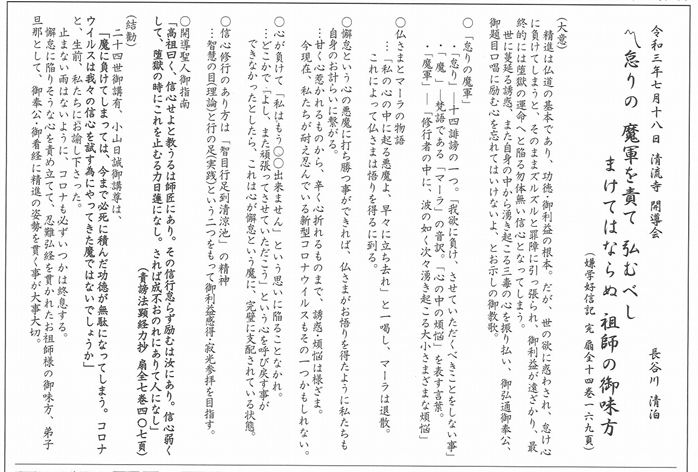 令和三年七月十八日 清流寺 開導会
長谷川 清泊
怠りの 魔軍を責て 弘むべし
まけてはならぬ 祖師の御味方
(嫌学好信記 完 扇全十四巻一六九頁)
(大意)
精進は仏道の基本であり、功徳・御利益の根本。だが、世の欲に惑わされ、怠け心
に負けてしまうと、そのままズルズルと罪障に引っ張られ、御利益が遠ざかり、最
終的には堕獄の運命へと陥る勿体無い信心となってしまう。
世に蔓延る誘惑、また自身の中から湧き起こる三毒の心を振り払い、御弘通御奉公、
御題目口唱に励む心を忘れてはいけないよ、とお示しの御教歌。
○「怠りの魔軍」
・「怠り」―十四誹謗の一つ。「我欲に負け、させていただくべきことをしない事」
・「魔」―梵語である「マーラ」の音訳。「心の中の煩悩」を表す言葉。
・「魔軍」―「修行者の中に、波の如く次々湧き起こる大小さまざまな煩悩」
○仏さまとマーラの物語
…「私の心の中に起る悪魔よ、早々に立ち去れ」と一喝し、マーラは退散。
これによって仏さまは悟りを得るに到る。
○懈怠という心の悪魔に打ち勝つ事ができれば、仏さまがお悟りを得たように私たちも
自身のお計らいに繋がる。
…甘く心惹かれるものから、辛く心折れるものまで、誘惑・煩悩は様ざま。
今現在、私たちが耐え忍んでいる新型コロナウイルスもその一つかもしれない。
○心が負けて「私はもう〇〇出来ません」という思いに陥ることなかれ。
…どこかで「よし、また頑張ってさせていただこう」という心を呼び戻す事が
できなかったとしたら、これは心が懈怠という魔に、完璧に支配されている状態。
○信心修行のあり方は「智目行足到清涼池」の精神
…智慧の目(理論)と行の足(実践)という二つをもって御利益感得・寂光参拝を目指す。
○開導聖人御指南
「高祖曰く、信心せよと教うるは師匠にあり。その信行怠らず励むは汝にあり。信心弱く
して、堕獄の時にこれを止むる力日蓮になし。されば成不おのれにありて人になし」
(責謗法顕経力抄 扇全七巻四〇七頁)
(結勧)
二十四世御講有、小山日誠御講尊は、
「魔に負けてしまっては、今まで必死に積んだ功徳が無駄になってしまう。コロナ
ウイルスは我々の信心を試す為にやってきた魔ではないでしょうか」
と、生前、私たちにお諭し下さった。
止まない雨はないように、コロナも必ずいつかは終息する。
懈怠に陥りそうな心を責め立てて、忍難弘経を貫かれたお祖師様の御味方、弟子
旦那として、御奉公・御看経に精進の姿勢を貫く事が大事大切。